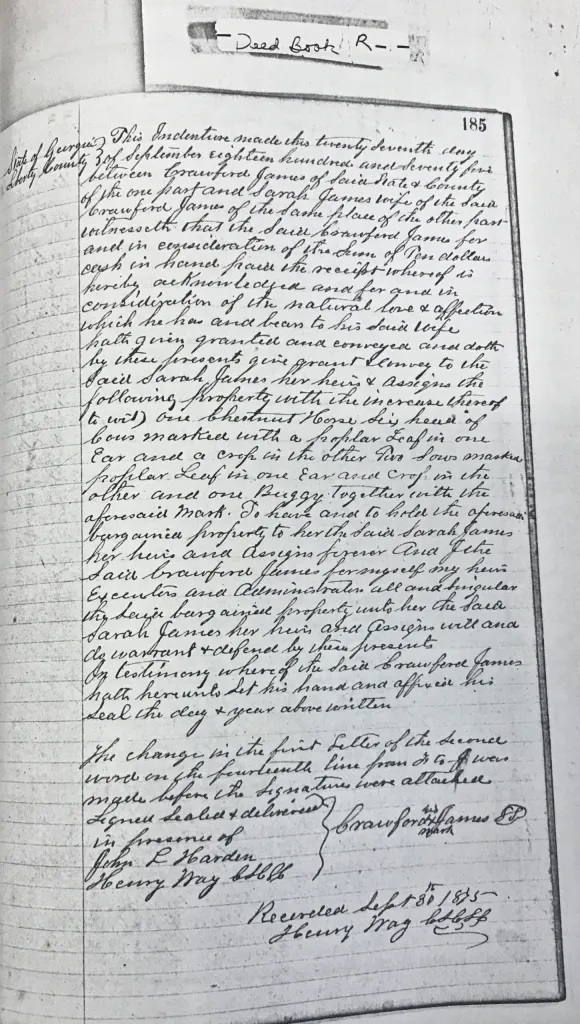 Deed Book R
185
State of Georgia
Liberty County
This Indenture made this twenty seventh day
of September eighteen hundred and seventy five
between Crawford James of Said State & County
of the one part and Sarah James wife of the Said
Crawford James of the Same place of the other part
witnesseth that the Said Crawford James for
and in consideration of the Sum of Ten dollars
cash in hand paid the receipt whereof is
hereby acknowledged and for and in
consideration of the natural love & affection
which he has and bears to his Said wife
hath given granted and conveyed and doth
by these presents give grant & convey to the
Said Sarah James her heirs & assigns the
following property with the increase thereof
to wit) one Chestnut Horse Six head of
Cows marked with a poplar Leaf in one
Ear and a crop in the other Two Sows marked
poplar Leaf in one Ear and Crop in the
other and one Buggy together with the
aforesaid mark. To have and to hold the aforesaid
bargained property to her the Said Sarah James
her heirs and Assigns forever And I the
Said Crawford James for myself my heirs
Executors and Administrators all and Singular
the Said bargained property unto her the Said
Sarah James her heirs and Assigns will and
do warrant & defend by these presents
In testimony whereof the Said Crawford James
hath hereunto Set his hand and affixed his
Seal the day & year above written
The change in the first Letter of the Second
word on the fourteenth line from to J was
made before the Signatures were attached
Signed Sealed & delivered
in presence of
John L Harden
Henry Way CSCLC
Crawford his x mark James LS
Recorded Sept 30th 1875
Henry Way